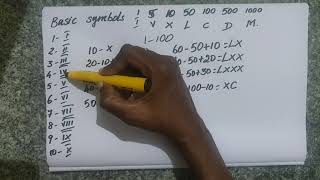 Basic symbols 1 5 10 50 100 500 1000
I V X L C D M
1-100
1- I
2- II 10 - X 60-50+10=LX
3- III 20-10 -50+20=LXX
4- IV -50+30=LXXX
5- V
6- VI 100-10=XC
7- VII 50
8- VIII
9- IX
10- X